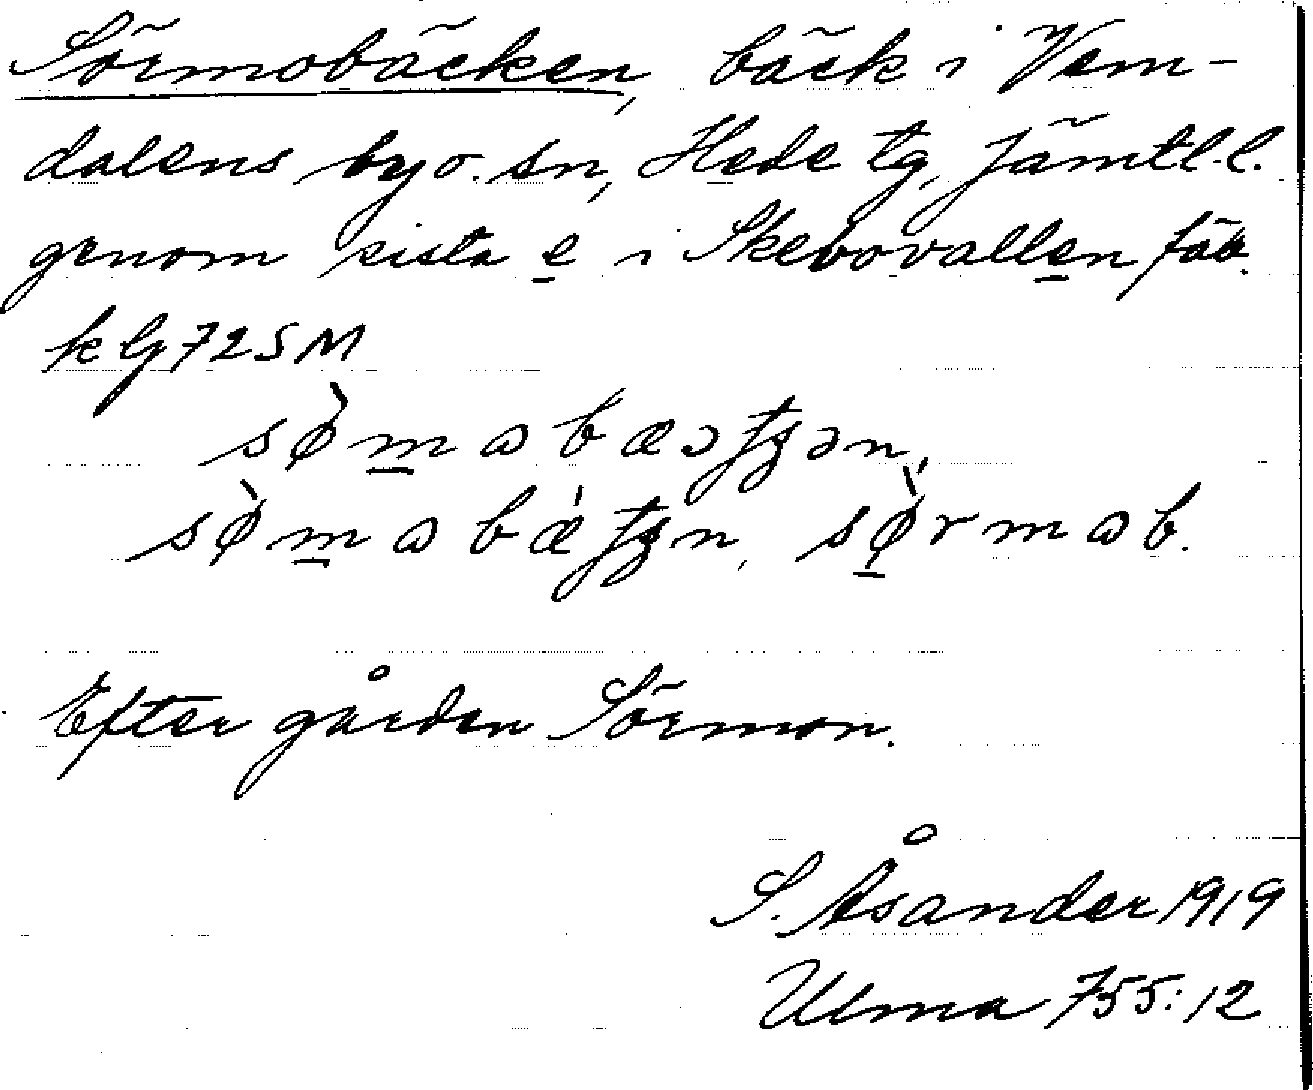 Sörmobäcken, bäck i Vem-
dalens by o. sn, Hede tg, Jämtl. l.
genom sista e i Skevovallen fäb.
k bl 72 SM
sø̀m̲abæəʈʂən,
sø̀m̲abæ̀ʈʂn, sø̲̀rmab.
Efter gården Sörmon.
S. Åsander 1919
Ulma 755:12